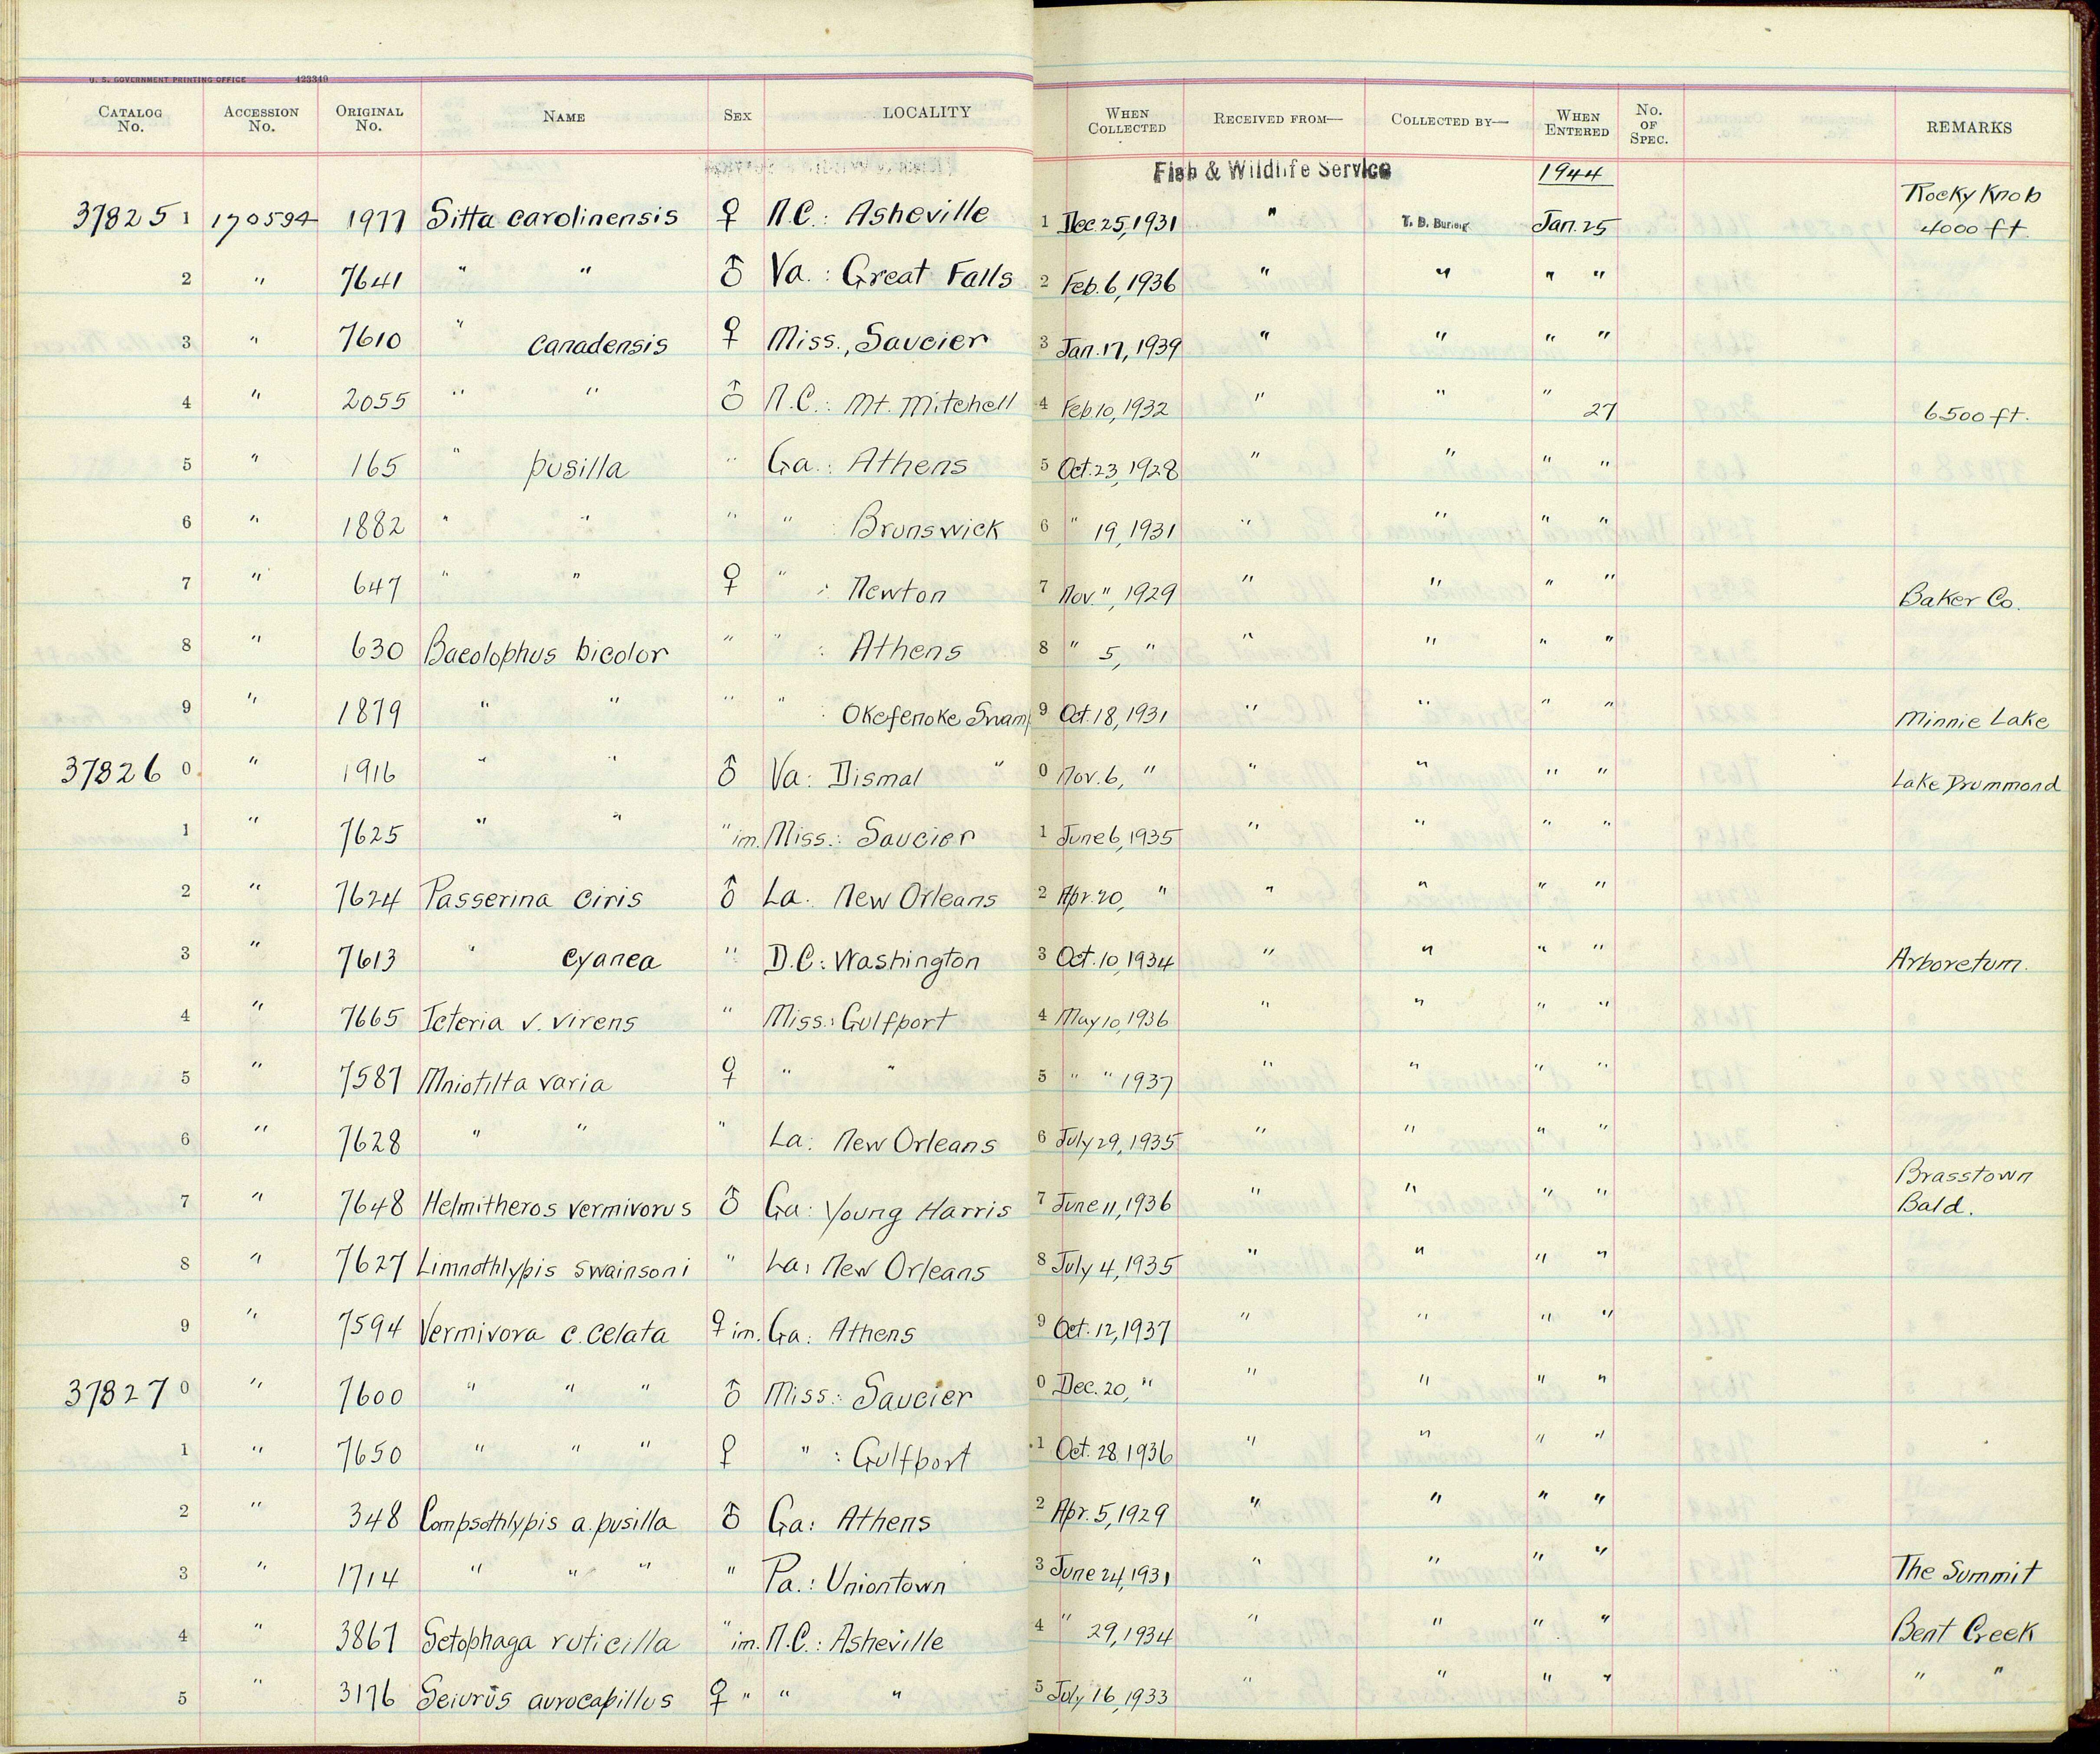 U. S. GOVERNMENT PRINTING OFFICE 423349
CATALOG No. ACCESSION No. ORIGINAL No. NAME SEX LOCALITY WHEN COLLECTED RECEIVED FROM— COLLECTED BY— WHEN ENTERED No. OF SPEC. REMARKS
Fish & Wildlife Service 1944
378251 170594 1977 Sitta carolinensis ♀ N.C.: Asheville 1 Dec. 25, 1931 " T. D. Burleigh Jan. 25 Rocky Knob 4000 ft.
2 " 7641 " " ♂ Va.: Great Falls 2 Feb. 6, 1936 " " " "
3 " 7610 " canadensis ♀ Miss., Saucier 3 Jan. 17, 1939 " " " "
4 " 2055 " " ♂ N.C.: Mt. Mitchell 4 Feb 10, 1932 " " " 27 6500 ft.
5 " 165 " pusilla " Ga.: Athens 5 Oct. 23, 1928 " " " "
6 " 1882 " " " " : Brunswick 6 " 19, 1931 " " " "
7 " 647 " " ♀ " : Newton 7 Nov. ", 1929 " " " " Baker Co.
8 " 630 Baeolophus bicolor " " : Athens 8 " 5, " " " " "
9 " 1879 " " " " : Okefenoke Swamp 9 Oct. 18, 1931 " " " " Minnie Lake
378260 " 1916 " " ♂ Va: Dismal " 0 Nov. 6, " " " " " Lake Drummond
1 " 7625 " " " im. Miss.: Saucier 1 June 6, 1935 " " " "
2 " 7624 Passerina ciris ♂ La. New Orleans 2 Apr. 20, " " " " "
3 " 7613 " cyanea " D.C.: Washington 3 Oct. 10, 1934 " " " " Arboretum.
4 " 7665 Icteria v. virens " Miss.: Gulfport 4 May 10, 1936 " " " "
5 " 7587 Mniotilta varia ♀ " " 5 " " 1937 " " " "
6 " 7628 " " " La: New Orleans 6 July 29, 1935 " " " "
7 " 7648 Helmitheros vermivorus ♂ Ga: Young Harris 7 June 11, 1936 " " " " Brasstown Bald.
8 " 7627 Limnothlypis swainsoni " La: New Orleans 8 July 4, 1935 " " " "
9 " 7594 Vermivora c. celata ♀ im. Ga: Athens 9 Oct. 12, 1937 " " " "
378270 " 7600 " " " ♂ Miss.: Saucier 0 Dec. 20, " " " " "
1 " 7650 " " " ♀ " : Gulfport 1 Oct. 28 1936 " " " "
2 " 348 Compsothlypis a. pusilla ♂ Ga: Athens 2 Apr. 5, 1929 " " " "
3 " 1714 " " " " Pa.: Uniontown 3 June 24, 1931 " " " " The Summit
4 " 3867 Setophaga ruticilla " im. N.C.: Asheville 4 " 29, 1934 " " " " Bent Creek
5 " 3176 Seiurus aurocapillus ♀ " " " 5 July 16, 1933 " " " " " "